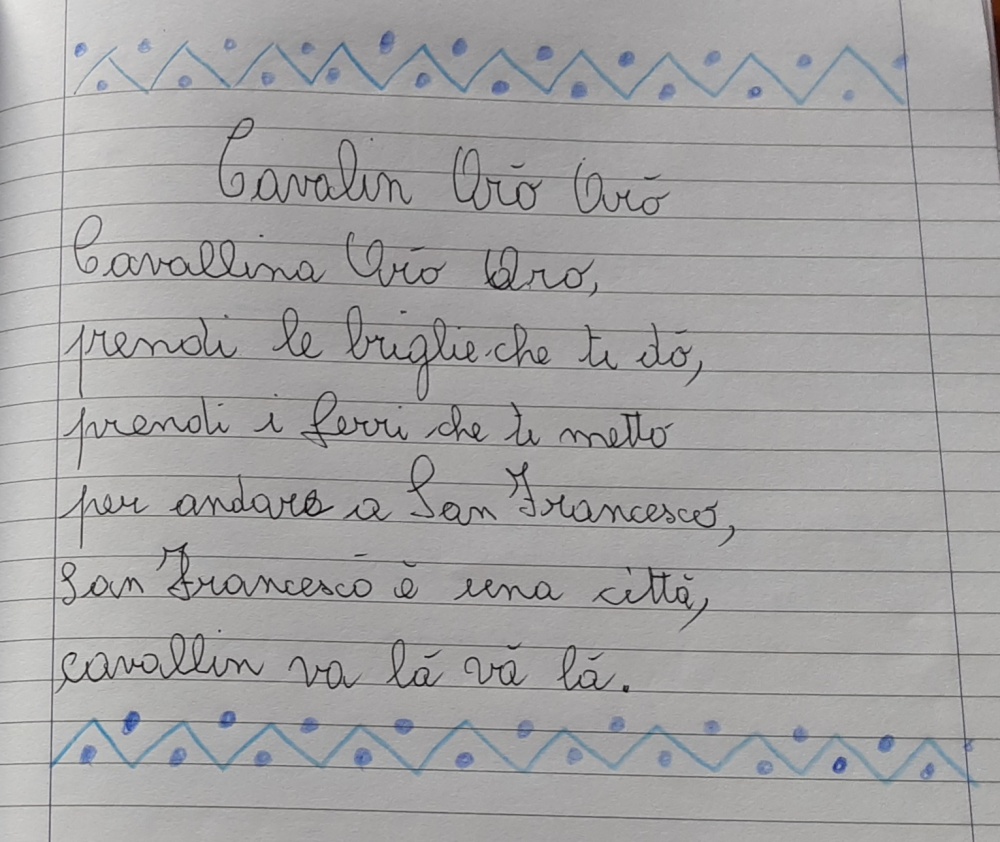 Cavalin Oriō Oriō
Cavallina Oriō Oro,
prendi le briglie che ti dō,
prendi i ferri che ti metto
per andare a San Francesco,
San Francescō è una città,
cavallin va lā vā lā.